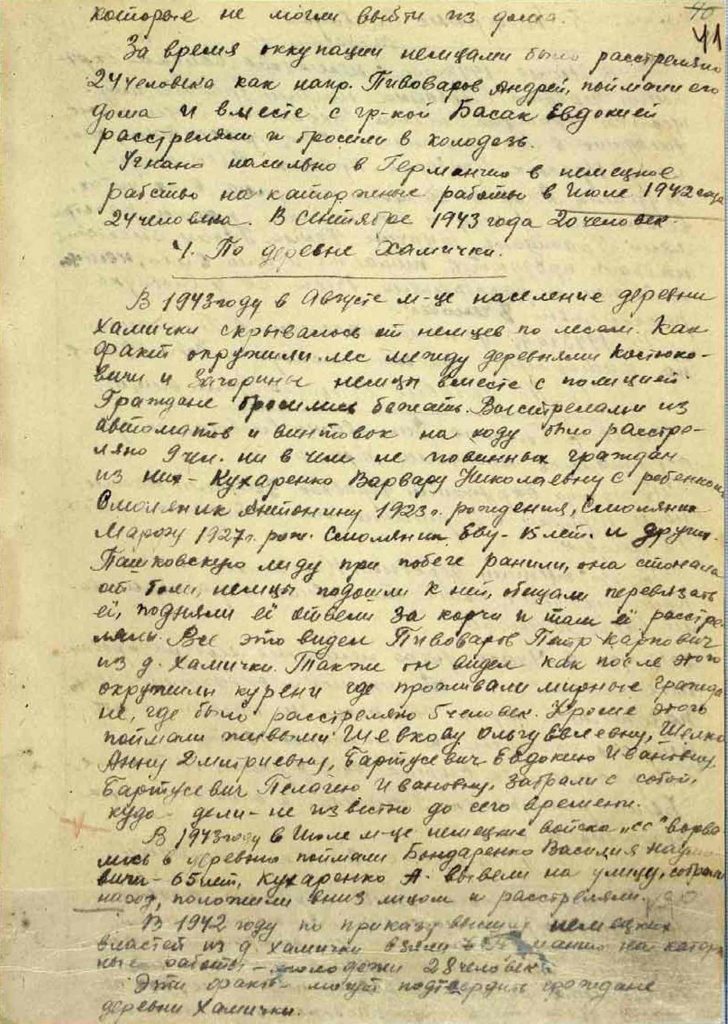 40
41
которые не могли выбти из дома.
За время оккупации немцами было расстреляно
24 человека как напр. Пивоваров Андрей, поймали его
дома и вместе с гр-кой Басак Евдокией
расстреляли и бросили в холодезь.
Угнано насильно в Германию в немецкое
рабство на каторжные работы в Июле 1942 года
24 человека. В Сентябре 1943 года 20 человек.
4. По деревне Хамички.
В 1943 году в Августе м-це население деревни
Хамички скрывалось от немцев по лесам. Как
факт окружили лес между деревнями Костюко-
вичи и Загорины немцы вместе с полицией.
Граждане бросились бежать. Выстрелами из
автоматов и винтовок на ходу было расстре-
ляно 9 чел. ни в чем не повинных граждан
из них - Кухаренко Варвару Николаевну с ребенком
Смоляник Антонину 1923 г. рождения, Смоляник
1927 г. рож. Смоляник Еву - 15 лет. и других.
Пашковскую Лиду при побеге ранили, она стонала
от боли, немцы подошли к ней, обещали перевязать
её, подняли её отвели за корчи и там её расстре-
ляли. Все это видел Пивоваров Петр Карпович
из д. Хамички. Также он видел как после этого
окружили курени где проживали мирные гражда
не, где было расстреляно 5 человек. Кроме этого
поймали живыми Шевкову Ольгу
Анну Дмитриевну, Бартусевич Евдокию Ивановну
Бартусевич Пелагею Ивановну, забрали с собой,
куда дели - не известно до сего времени.
В 1943 году в Июле м-це немецкие войска "СС" ворва
лись в деревню поймали Бондаренко Василия Нау
вича - 65 лет, Кухаренко А. вывели на улицу, собрали
народ, положили вниз лицом и расстреляли.
В 1942 году по приказу высших немецких
властей из д. Хамички взяли в на каторж
ные работы - молодежи 28 человек.
Эти факты могут подтвердить граждане
деревни Хамички.